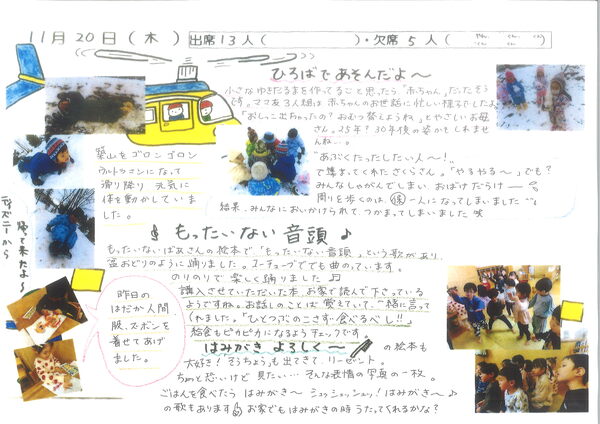 11月20日(木) 出席13人( )・欠席5人( くん くん くん)
ひろばであそんだよ〜
小さなゆきだるまを作ってると思ったら「赤ちゃん」だったそう
です。ママ友3人組は赤ちゃんのお世話に忙しい様子でしたよ
「おしっこ出ちゃったの? おむつ替えようね」とやさしいお母
さん。25年? 30年後の姿かもしれませ
んね…。
"あぶくたったしたい人〜!"
で集まってくれたさくらさん。「やるやる〜」でも?
みんなしゃがんでしまい、おばけだらけ—
周りを歩くのは、一人になってしまいました
結果、みんなにおいかけられて、つかまってしまいました 笑
築山をゴロンゴロン
ウルトラマンになって
滑り降り 元気に
体を動かしていま
した。
帰って来たよ〜
ディズニーから
もったいない音頭♪
もったいないばあさんの絵本で「もったいない音頭」という歌があり、
盆おどりのように踊りました。ユーチューブででも曲のっています。
のりのりで楽しく踊りました♫
購入させていただいた本、お家で読んで下さっている
ようですね。お話しのことば覚えていて、一緒に言って
くれました。「ひとつぶのこさず食べるべし!!」
給食もピカピカになるようチェックです。
昨日の
はだか人間
服、ズボンを
着せてあげ
ました。
はみがきよろしく〜 の絵本も
大好き! ぞうちょうも出てきて、リーゼント。
ちょっと恐いけど見たい…そんな表情の写真の一枚。
ごはんを食べたら はみがき〜 シュッシュッシュッ! はみがき〜♪
の歌もあります お家でもはみがきの時うたってくれるかな?